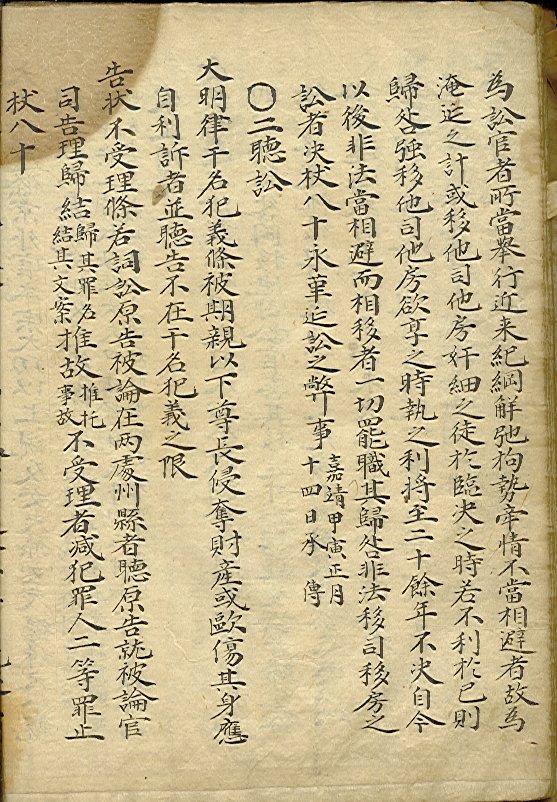 為訟官者所當擧行近来紀綱解弛拘勢牽情不當相避者故為
淹延之計或移他司他房奸細之徒於臨决之時若不利於已則
歸咎强移他司他房欲享之時執之利將至二十餘年不决自今
以後非法當相避而相移者一切罷職其歸咎非法移司移房之
訟者决杖八十永革延訟之弊事嘉靖甲寅正月十四日承傳
〇二聽訟
大明律干名犯義條被期親以下尊長侵奪財産或歐傷其身應
自利訴者並聽告不在干名犯義之限
告状不受理條若詞訟原告被論在两處州縣者聽原告就被論官
司告理歸結歸其罪名結其文案推故推托事故不受理者减犯罪人二等罪止
杖八十